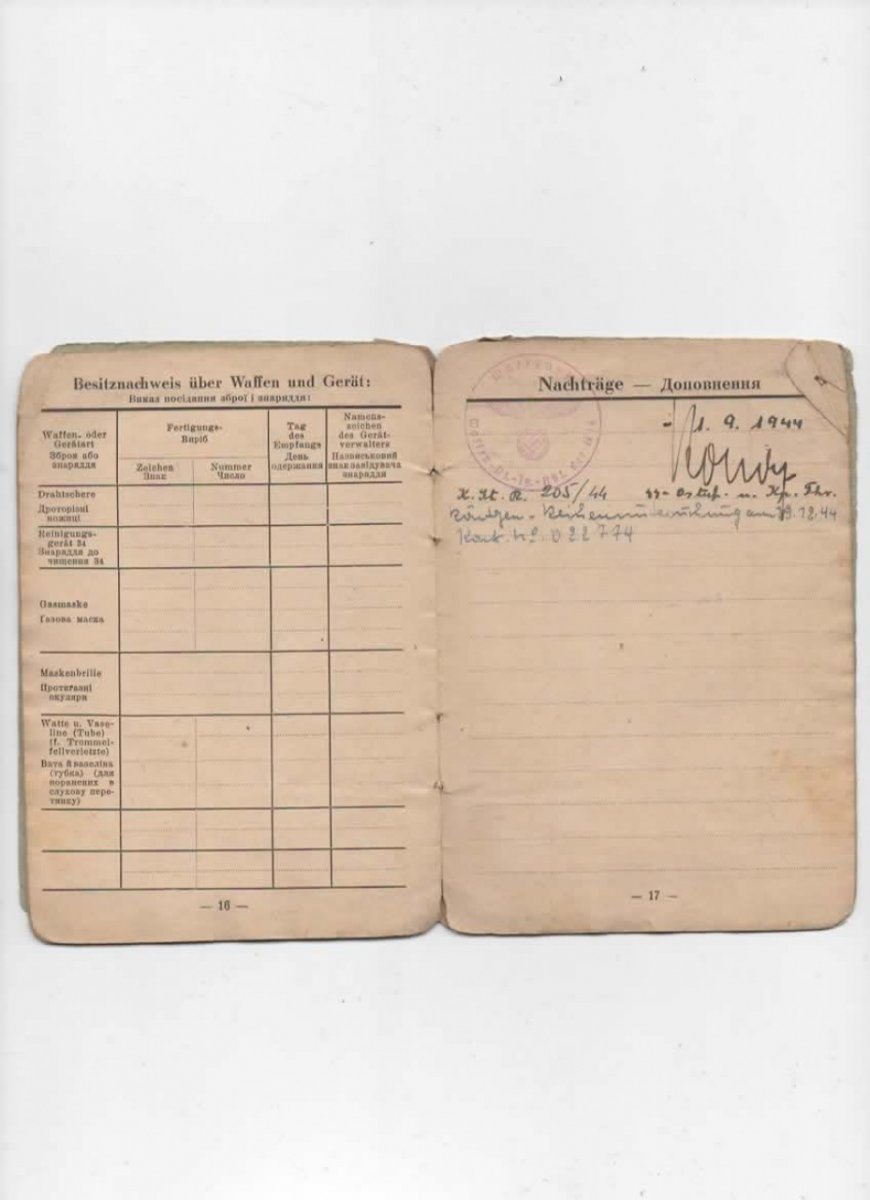 Besitznachweis über Waffen und Gerät:
Виказ посідання зброї і знаряддя:
Waffen- oder
Gerätart
Зброя або
знаряддя
Fertigungs-
Виріб
Zeichen
Знак
Nummer
Число
Tag
des
Empfangs
День
одержання
Namens-
zeichen
des Gerät-
verwalters
Назвиськовий
знак завідувача
знаряддя
Drahtschere
Дроторізні
ножиці
Reinigungs-
gerät 34
Знаряддя до
чищення 34
Gasmaske
Газова маска
Maskenbrille
Протигазні
окуляри
Watte u. Vase-
line (Tube)
(f. Trommel-
fellverletzte)
Вата й вазеліна
(тубка) (для
поранених в
слухову пере-
тинку)
— 16 —
Nachträge — Доповнення
1. 9. 1944
K. St. R. 205/44
SS-Ostuf. u. Kp. Fhr.
Röntgen-Reihenuntersuchung am 19.12.44
Kart. No. 022774
— 17 —